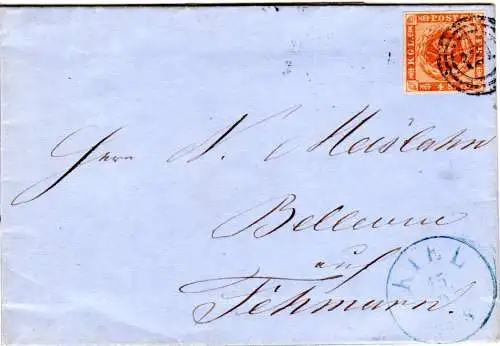 KGL. POST FRM.
4 S
Herrn N. Meislahn
Bellevue
auf
Fehmarn.
KIEL
15